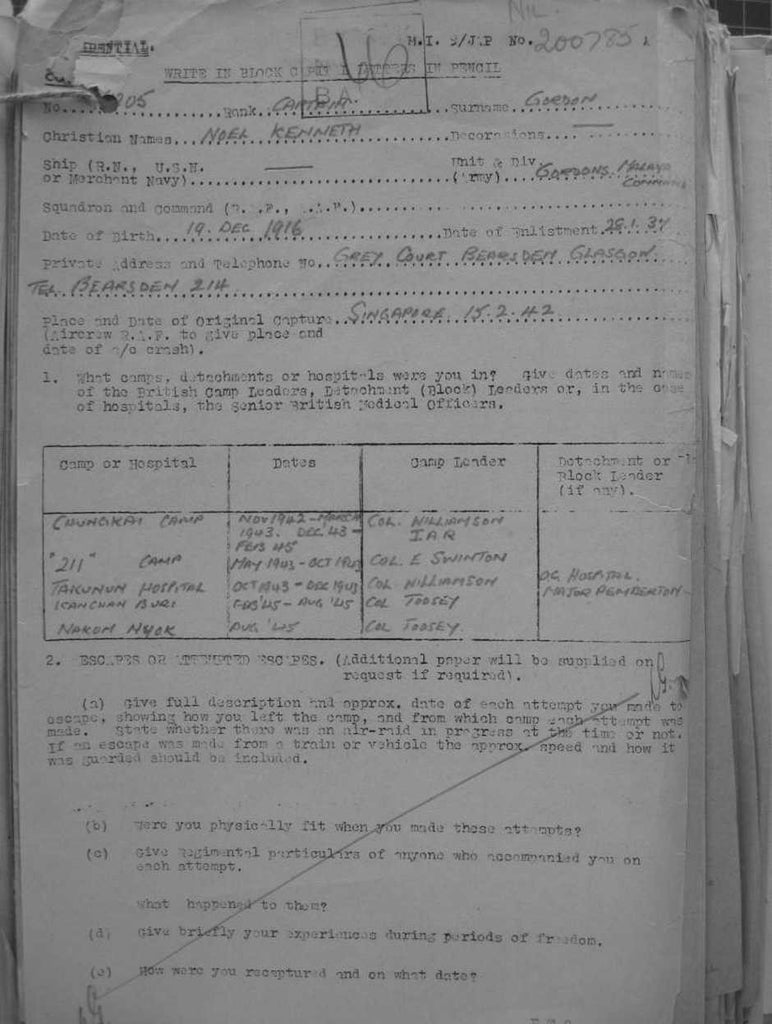 NIL.
M.I. 9/JAP No. 200785 A
WRITE IN BLOCK CAPITAL LETTERS IN PENCIL
No. 205 Rank CAPTAIN Surname GORDON
Christian Names NOEL KENNETH Decorations —
Ship (R.N., U.S.N. — Unit & Div
or Merchant Navy) (Army) GORDONS, MALAYA COMMAND
Squadron and Command (R.A.F., A.A.F.)
Date of Birth 19. DEC. 1916 Date of Enlistment 28.1.37
Private Address and Telephone No. GREY COURT BEARSDEN GLASGOW
TEL. BEARSDEN 214
Place and Date of Original Capture SINGAPORE 15.2.42
(Aircrew R.A.F. to give place and
date of a/c crash).
1. What camps, detachments or hospitals were you in? Give dates and names
of the British Camp Leaders, Detachment (Block) Leaders or, in the case
of hospitals, the Senior British Medical Officers.
Camp or Hospital Dates Camp Leader Detachment or
Block Leader
(if any).
CHUNGKAI CAMP NOV 1942 - MARCH 1943. DEC. 43 - FEB 45 COL. WILLIAMSON IAR
"211" CAMP MAY 1943 - OCT 1943 COL. E SWINTON
TAKUNUN HOSPITAL OCT 1943 - DEC 1943 COL WILLIAMSON OC HOSPITAL. MAJOR PEMBERTON
KANCHAN BURI FEB '45 - AUG '45 COL TOOSEY
NAKOM NYOK AUG '45 COL TOOSEY.
2. ESCAPES OR ATTEMPTED ESCAPES. (Additional paper will be supplied on
request if required).
(a) Give full description and approx. date of each attempt you made to
escape, showing how you left the camp, and from which camp each attempt was
made. State whether there was an air-raid in progress at the time or not.
If an escape was made from a train or vehicle the approx. speed and how it
was guarded should be included.
(b) Were you physically fit when you made these attempts?
(c) Give Regimental particulars of anyone who accompanied you on
each attempt.
What happened to them?
(d) Give briefly your experiences during periods of freedom.
(e) How were you recaptured and on what date?